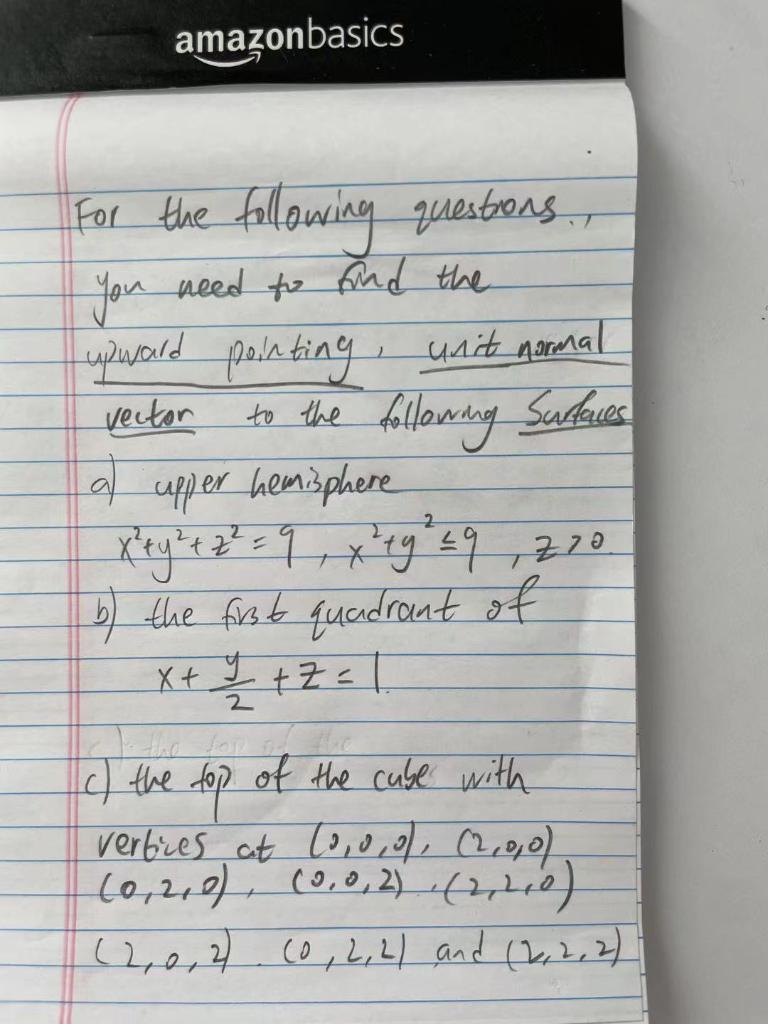 amazonbasics
For the following questions.,
you need to find the
upward pointing, unit normal
vector to the following Surfaces
a) upper hemisphere
x²+y²+z²=9, x²+y²≤9, z>0.
b) the first quadrant of
x+ y/2 +z=1.
c) the top of the
c) the top of the cube with
vertices at (0,0,0), (2,0,0)
(0,2,0), (0,0,2).(2,2,0)
(2,0,2). (0,2,2) and (2,2,2)